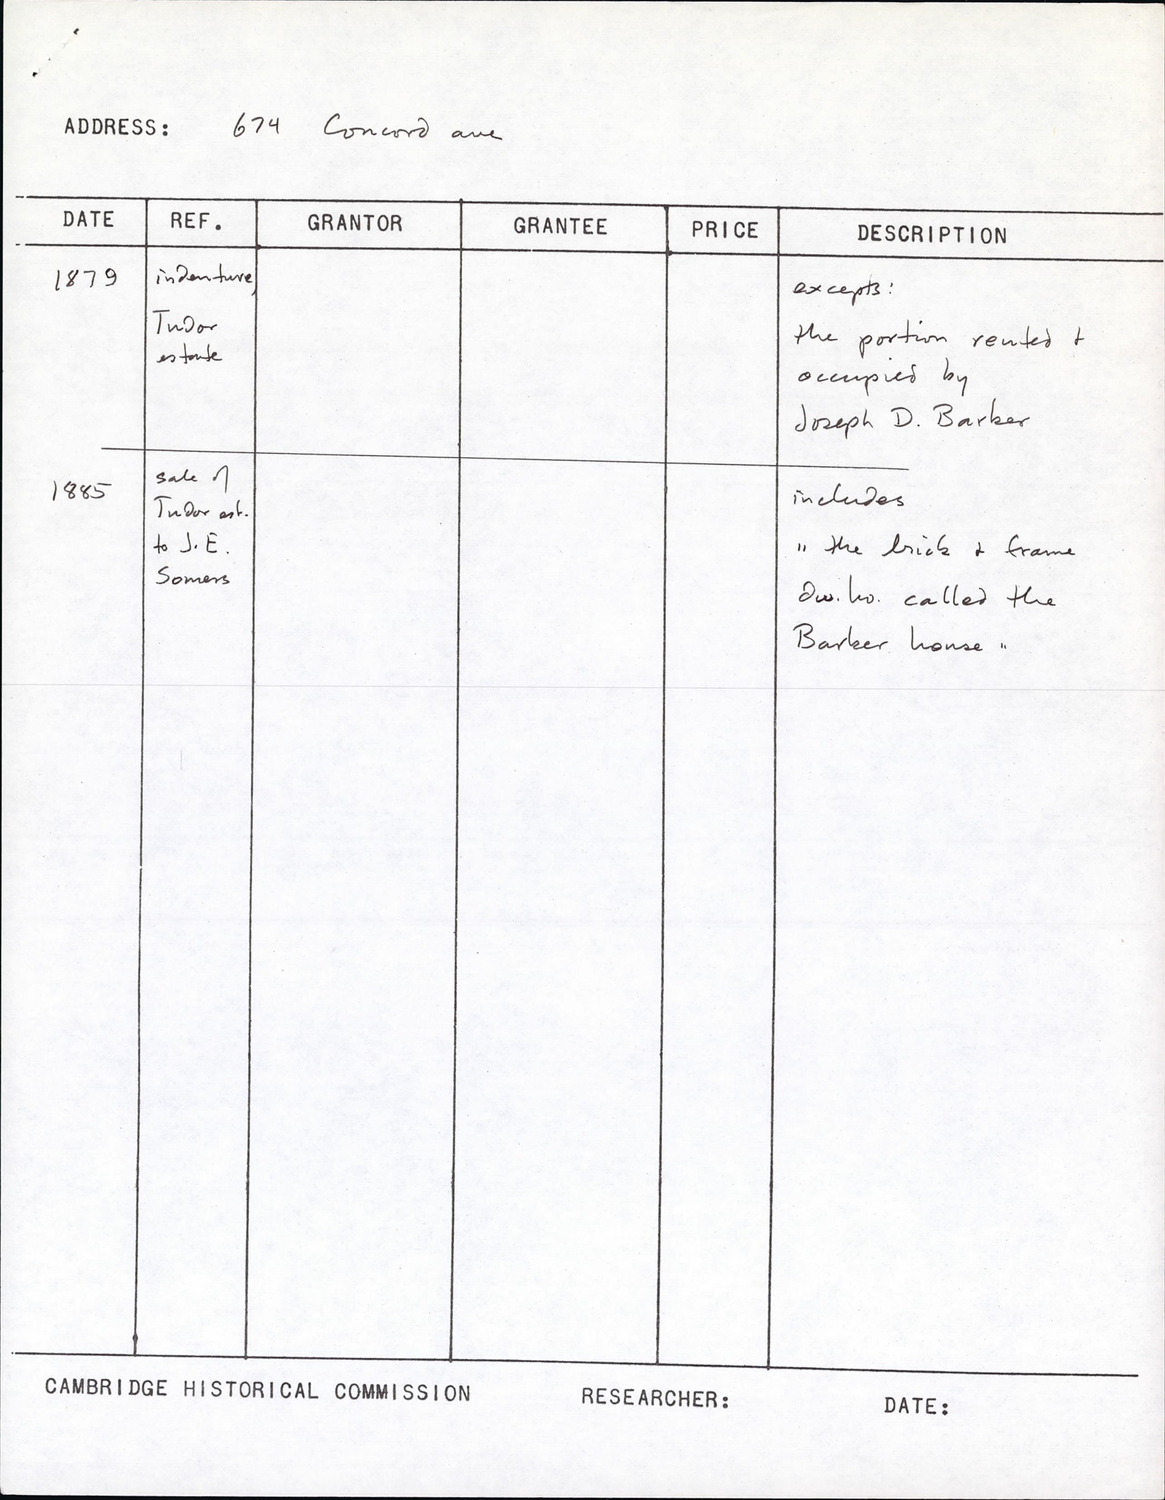 ADDRESS: 674 Concord ave
DATE REF. GRANTOR GRANTEE PRICE DESCRIPTION
1879 indenture, excepts:
Tudor the portion rented &
estate occupied by
Joseph D. Barker
1885 sale of includes
Tudor est. " the brick & frame
to J.E. dw. ho. called the
Somers Barker house "
CAMBRIDGE HISTORICAL COMMISSION RESEARCHER: DATE: